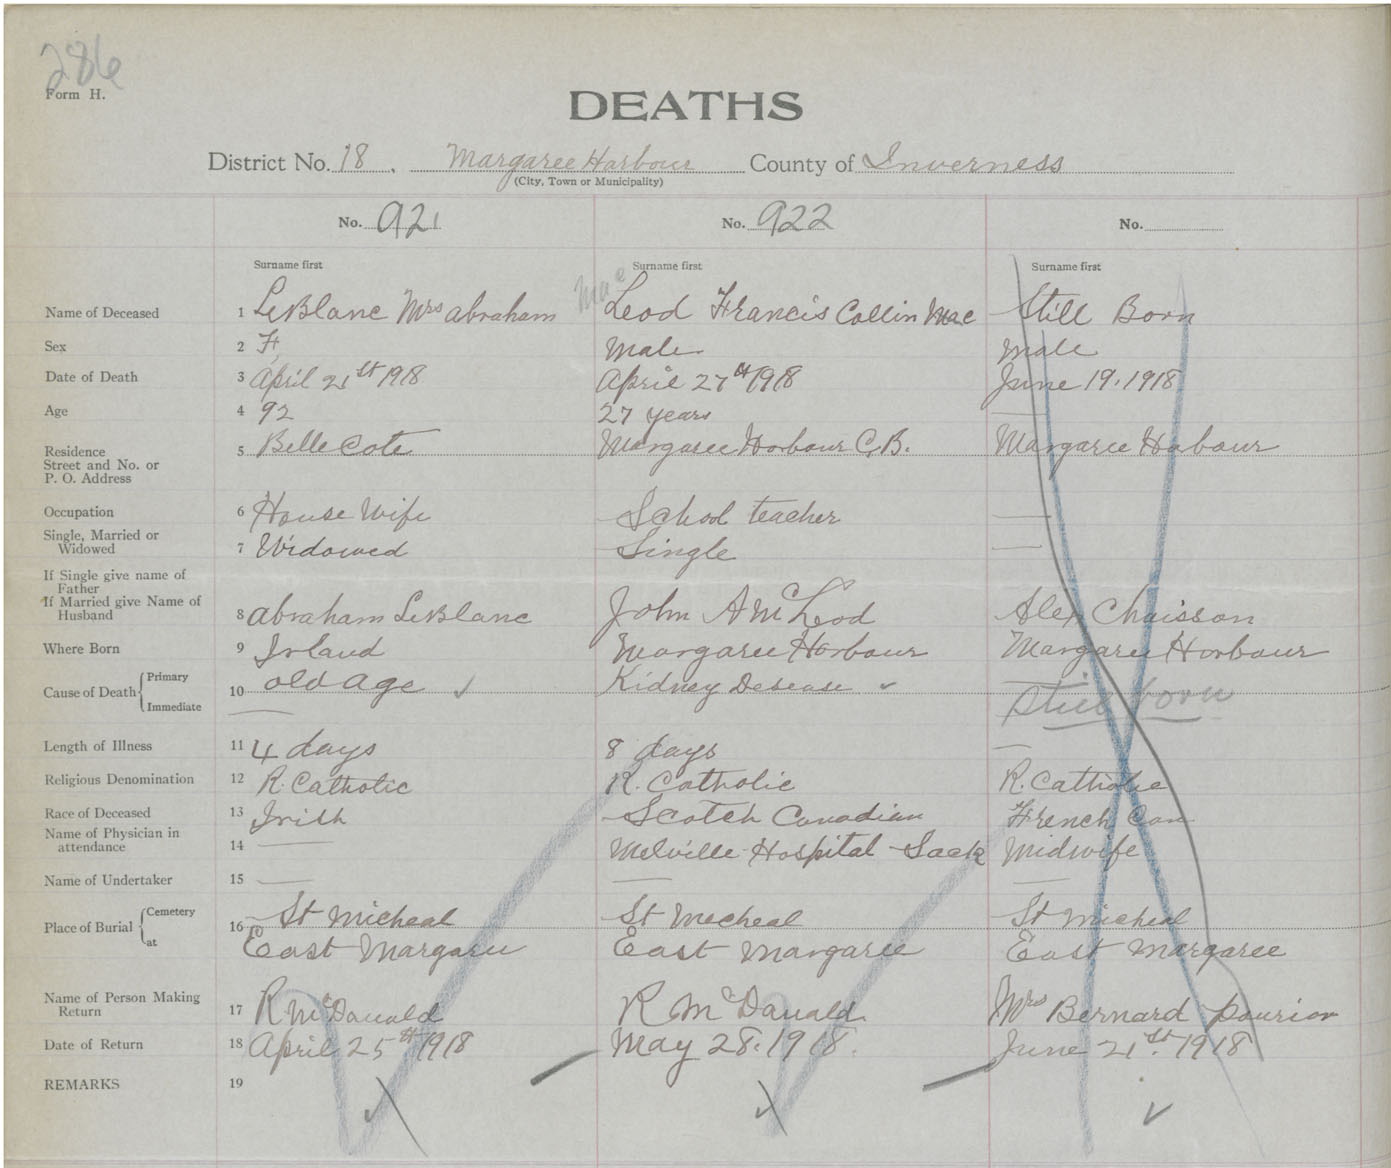 286
Form H.
DEATHS
District No. 18, Margaree Harbour County of Inverness
(City, Town or Municipality)
No. 921 No. 922 No.
Surname first Surname first Surname first
Name of Deceased 1 LeBlanc Mrs abraham Mac Leod Francis Collin Mac Still Born
Sex 2 F, Male Male
Date of Death 3 April 21st 1918 April 27th 1918 June 19. 1918
Age 4 92 27 years —
Residence
Street and No. or
P. O. Address 5 Belle Cote Margaree Harbour C.B. Margaree Habour
Occupation 6 House Wife School teacher —
Single, Married or
Widowed 7 Widowed Single —
If Single give name of
Father
If Married give Name of
Husband 8 abraham LeBlanc John A McLeod Alex Chaisson
Where Born 9 Irland Margaree Harbour Margaree Harbour
Cause of Death { Primary
Immediate 10 old age ✓ Kidney Desease ✓ Still born
Length of Illness 11 4 days 8 days —
Religious Denomination 12 R. Catholic R. Catholic R. Catholic
Race of Deceased 13 Irish Scotch Canadian French Can
Name of Physician in
attendance 14 — Melville Hospital Sack Midwife
Name of Undertaker 15 — — —
Place of Burial { Cemetery
at 16 St Micheal St Mecheal St Micheal
East Margaree East Margaree East Margaree
Name of Person Making
Return 17 R McDanald R McDanald Mrs Bernard Pourior
Date of Return 18 April 25th 1918 May 28. 1918. June 21st. 1918
REMARKS 19